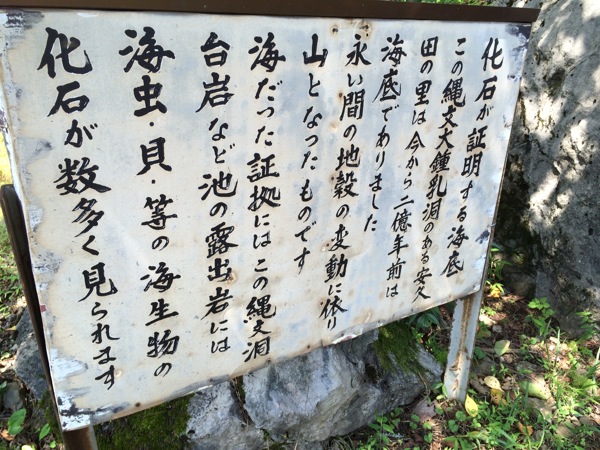 化石が証明する海底
この縄文大鍾乳洞のある安久
田の里は今から二億年前は
海底でありました
永い間の地殻の変動に依り
山となったものです
海だった証拠にはこの縄文洞
台岩など池の露出岩には
海虫・貝・等の海生物の
化石が数多く見られます